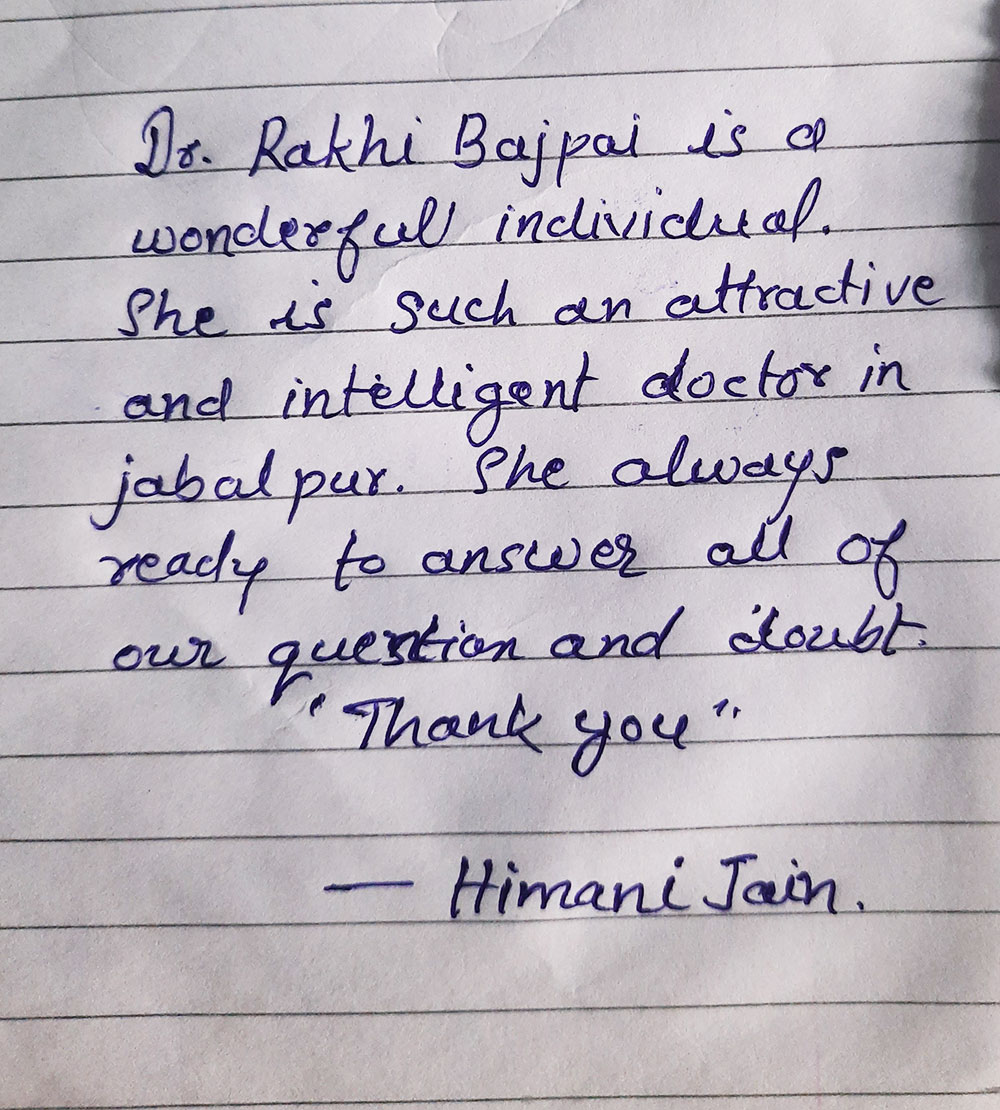 Dr. Rakhi Bajpai is a
wonderful individual.
She is such an attractive
and intelligent doctor in
jabalpur. She always
ready to answer all of
our question and doubt.
"Thank you"
— Himani Jain.